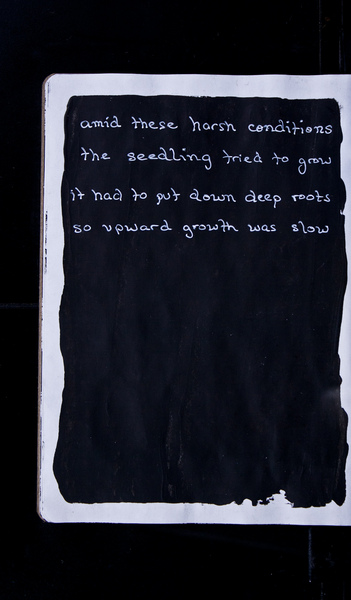 amid these harsh conditions
the seedling tried to grow
it had to put down deep roots
so upward growth was slow